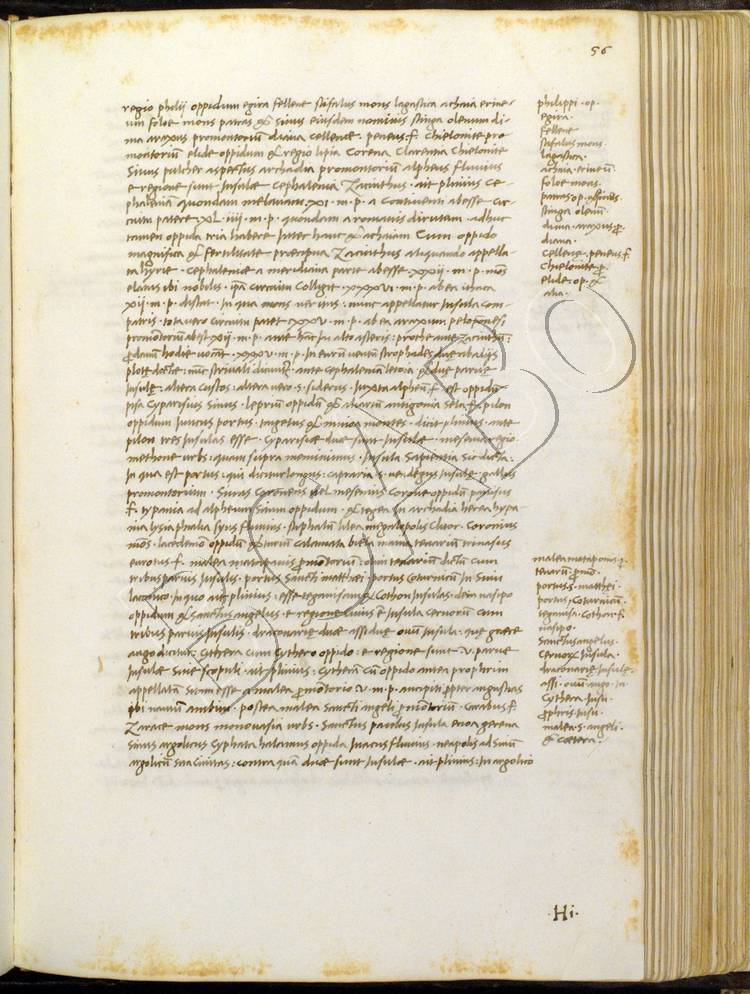 56
regio philij oppidum egira fellene stifalus mons lagastica achaia erine-
um foloe mons patras & sinus eiusdem nominis stinga olenum di-
ma araxus promontorium diana cellence. peneus f. chielonite pro
montoriũ elide oppidum & regio lipia Corena Clarentia Chielonite
Sinus pulcher aspectus archadia promontorium alpheus fluuius
e regione sunt Insulæ cephalenia Zacinthus. ait plinius ce-
phaleniã quondam melaniam .XI. m. p. a Continenti abesse cir
cuitu patere .XL. iiij. m. p. quondam a romanis dirutam. adhuc
tamen oppida tria habere Inter hanc & achaiam Cum oppido
magnifica & fertilitate præcipua Zacinthus aliquando appella-
ta hyrie. cephaleniæ a meridiana parte abesse .XXII. m. p. mõs
elatus ibi nobilis. circuitu Colligit .XXXVI. m. p. ab ea ithaca
XII. m. p. distat. In qua mons neritus: nunc appellatur Insula com-
patris. tota uero circuitu patet .XXV. m. p. ab ea araxum peloponesi
promontoriũ abest XII. m. p. ante hanc In alto asteris: prothe ante Zacinthũ:
hodie uocãt. XXXV. m. p. In eurũ uentũ strophades duæ ab alijs
plotæ dictæ: nũc striuali dicunt. ante cephaleniã letoia & duæ paruæ
Insulę: altera custos: altera uero s. siderus. Iuxta alpheũ f. est oppidũ
pisa Cyparissus Sinus. leprium oppidũ & aliarũ antigonia sela f. pilon
oppidum Iuncus portus. taigetus & minoa montes. dicit plinius ante
pilon tres Insulas esse. Cyparissiæ duæ sunt Insulæ. mesenia regio.
methone urbs: quam supra meminimus. Insula Sapientia sic dicta:
In qua est portus: qui dicitur longus: capraria. s. ue. degus Insulę. gallus
promontorium. Sinus Coroneus uel mesenius Corone oppidũ pamisus
f. typania ad alpheum Sium oppidum. & tegea In archadia herea hypa
nia lysia phialia syrus fluuius. stiphalũ lilea megalopolis Cliuor. Coronius
mõs. lacedemõ oppidũ & turiũ calamata biela maina teuarium trinassus
eurotus f. malea matapanus promõtoriũ: oim tenariũ dictũ cum
tribus paruis Insulis. portus Sancti matthei. portus Coturnicũ In Sinu
laconico. In quo ait plinius: esse teganissam & Cothon Insulas. dein uasipo
oppidum & Sanctus angelus. e regione Cuius ẽ Insula ceruorũ cum
tribus paruis Insulis. draconariæ duæ assi duæ ouũ Insula. que græce
augo dicitur. Cythera cum Cythero oppido: e regione sunt .V. paruæ
Insulæ Siue scopuli. ait plinius: Cytherã cũ oppido antea prophirim
appellatã Sitam esse a malea promõtorio V. m. p. ancipiti propter angustias
ibi nauiũ ambitu. postea malea Sancti angeli promõtoriũ. Carabus f.
Zarace mons monouasia urbs. Sanctus paulus Insula enoa gerena
Sinus argolicus Cyphata halcamus oppida Inacus fluuius. neapolis ad sinũ
argolicũ Sita Ciuitas: contra quã duæ sunt Insulæ. ait plinius: In argolico
philippi. op.
egira.
fellene
stifalus mons.
lagastica.
achaia. erineũ.
foloe mons.
patras op.
stinga olenũ.
dima. araxus p̃.
diana.
cellence. peneus. f.
Chielonite. p̃.
elide. op. &
alia.
malea matapanus. p̃.
tenariũ. promõ.
portus. s. matthei.
portus. Coturnicũ.
teganisa. Cothon. f.
uasipo.
Sanctus angelus.
Ceruorũ Insula.
draconariæ Insulę.
assi. ouũ. augo. In
Cythera. Insu.
prophiris Insu.
malea. s. angeli.
& Cætera.
.Hi.
CISBO